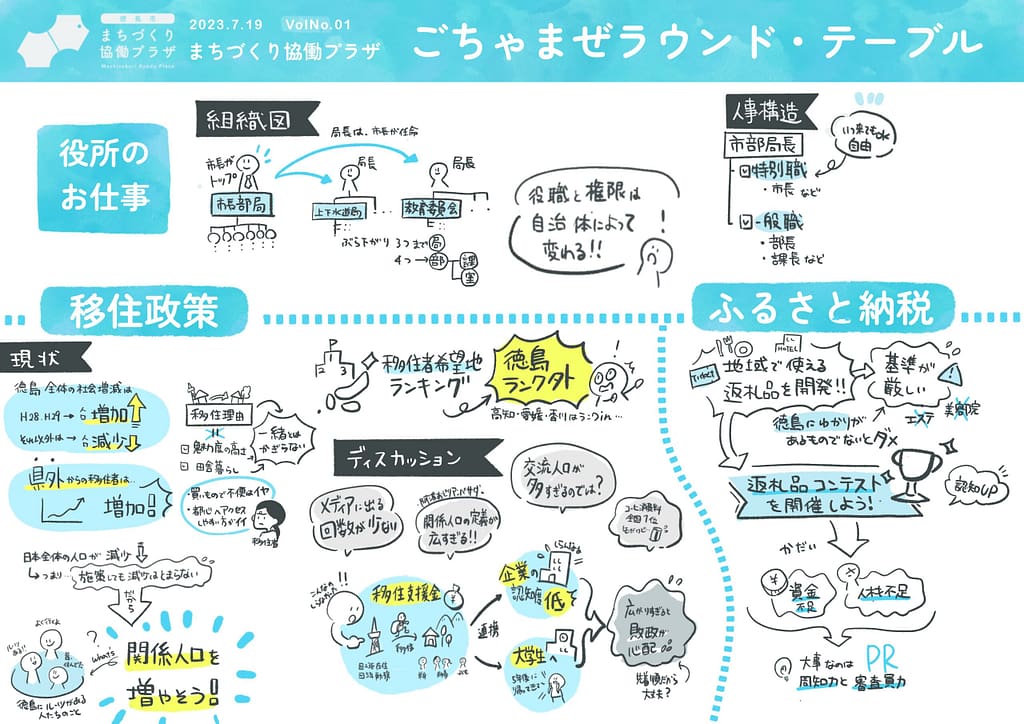 徳島市
まちづくり
協働プラザ
2023.7.19 VolNo.01
まちづくり協働プラザ
ごちゃまぜラウンド・テーブル
役所の
お仕事
組織図
局長は、市長が任命
市長が
トップ
局長
局長
市長部局
上下水道局
教育委員会
ぶら下がり 3つまで 局
4つ→ 部 課
室
役職と権限は
自治体によって
変わる!!
人事構造
市部局長
特別職
・市長 など
一般職
・部長
・課長 など
自由
移住政策
現状
徳島全体の社会増減は
H28.H29→人口増加
それ以外は→人口減少
県外からの移住者は…
増加!
移住理由
魅力度の高さ
田舎暮らし
一緒とは
かぎらない
・買いもので不便はイヤ
・都心へアクセス
しやすい方がイイ
移住者
日本全体の人口が減少
つまり…施策しても減少はとまらない
だから
what's
?
関係人口を
増やそう!
徳島にルーツがある
人たちのこと
移住者希望地
ランキング
徳島
ランク外
高知・愛媛・香川はランクin…
ディスカッション
メディアに出る
回数が少ない
関係人口の定義が
広すぎる!!
交流人口が
多すぎるのでは?
全国7位
移住支援金
連携
企業の
認知度低く
大学生へ
5年後に
帰ってきて
広がりすぎると
財政が
心配
大丈夫?
ふるさと納税
Ticket
HOTEL
地域で使える
返礼品を開発!!
基準が
厳しい
エステ 美容院
徳島にゆかりが
あるものでないとダメ
返礼品コンテスト
を開催しよう!
認知UP
かだい
資金
不足
人材不足
大事なのは PR
周知力と審査員力